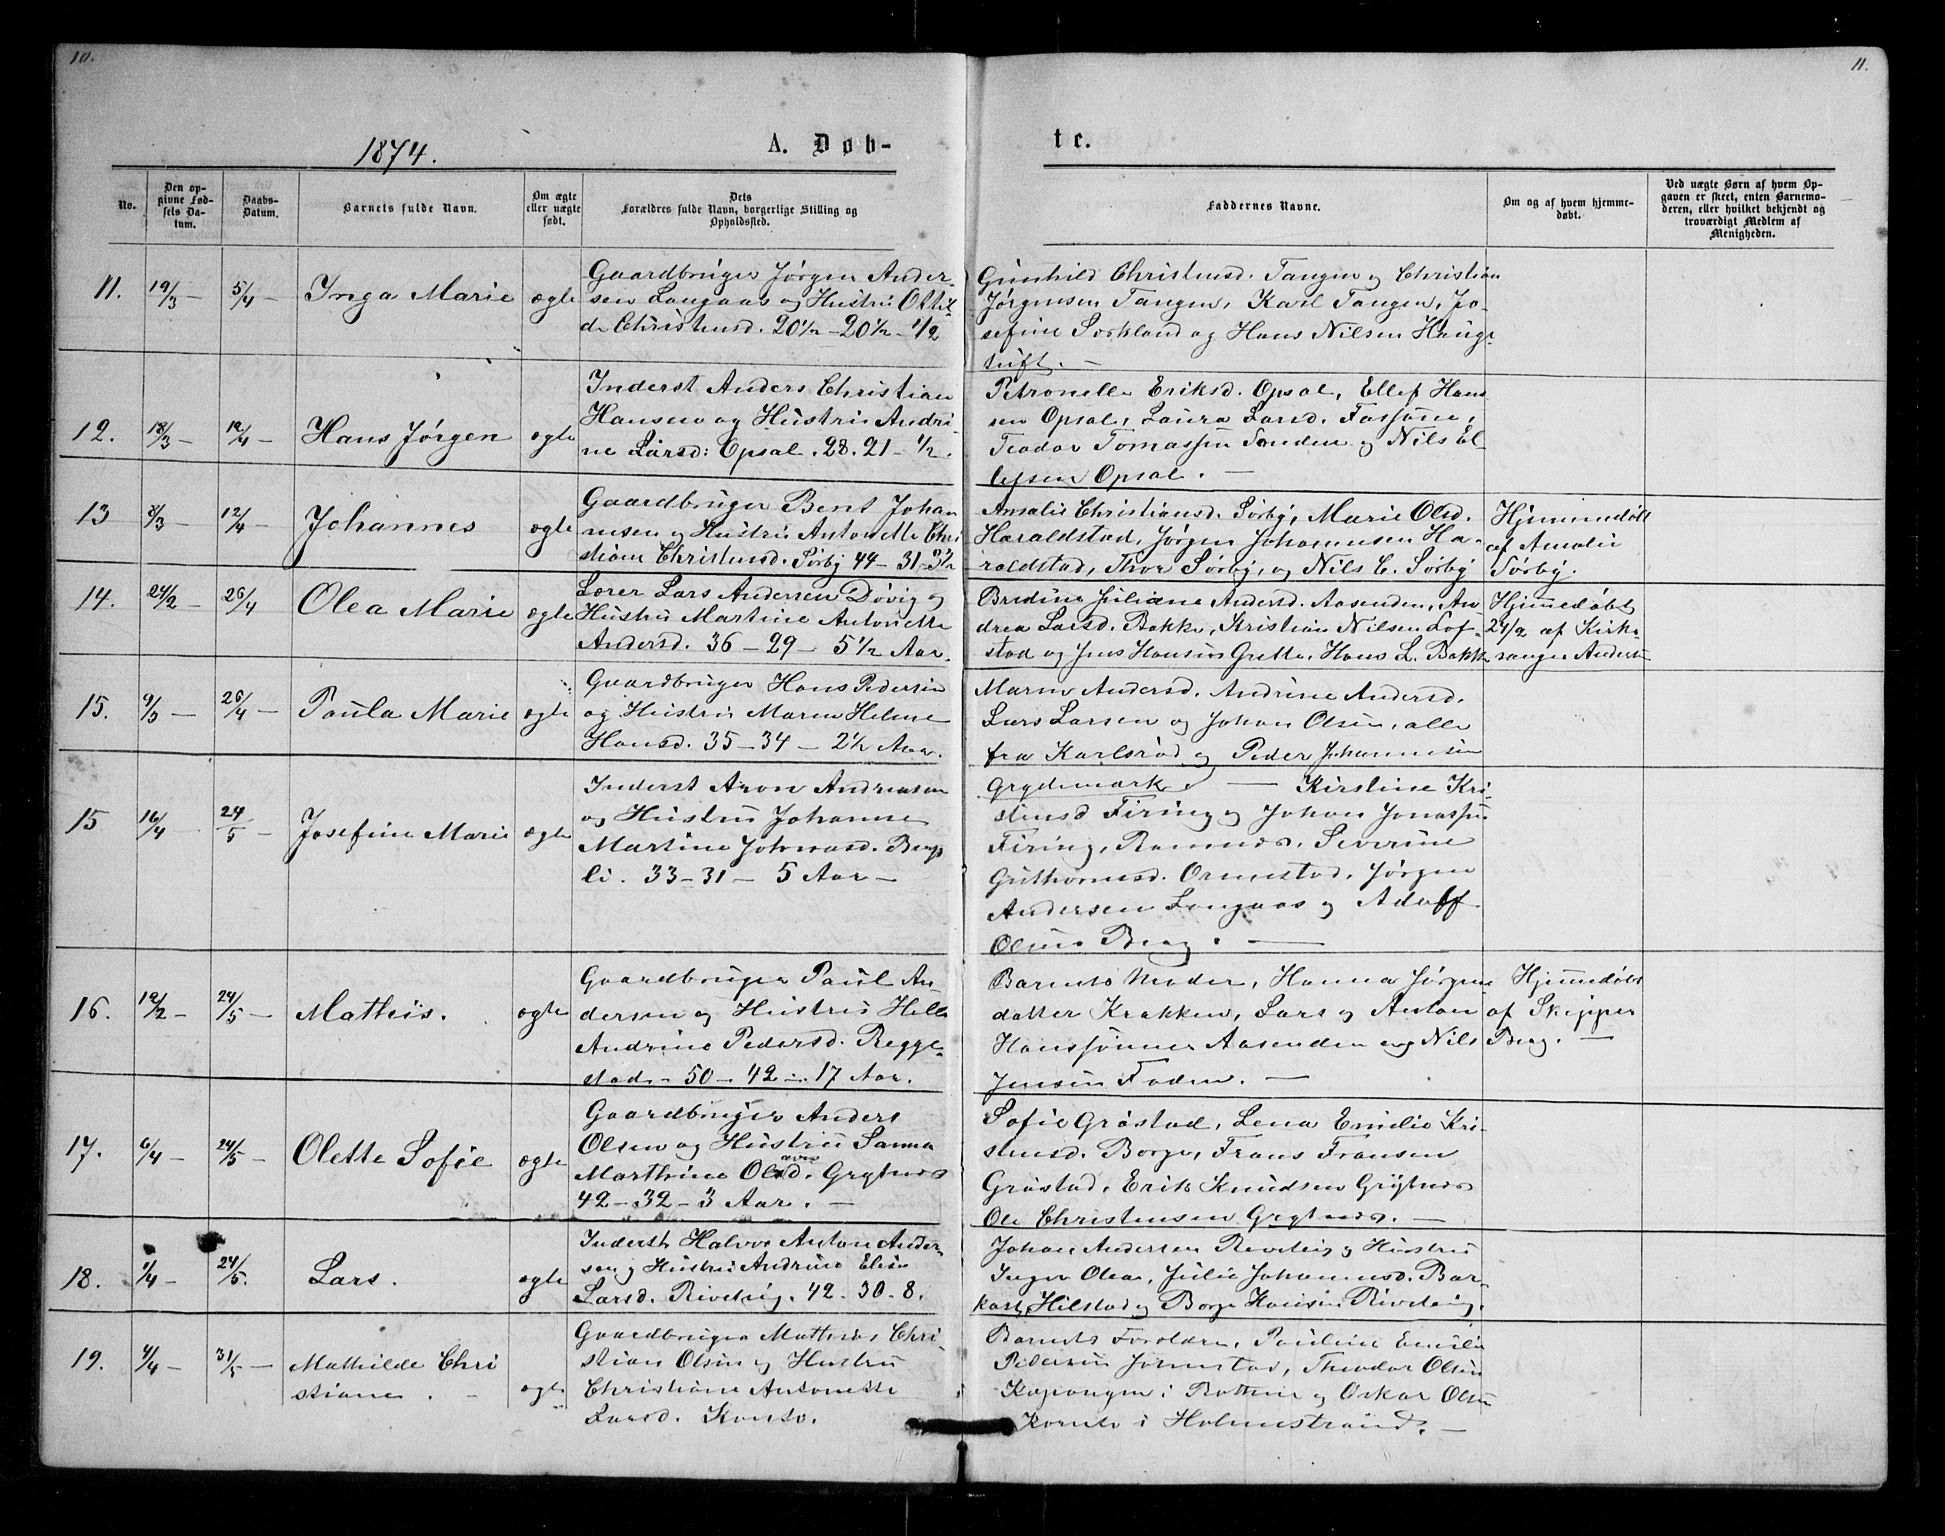 10.
11.
1874.
A. Døb-
te.
No.
Den op-
givne Fød-
sels Da-
tum.
Daabs-
Datum.
Barnets fulde Navn.
Om ægte
eller uægte
født.
Dets
Forældres fulde Navn, borgerlige Stilling og
Opholdssted.
Faddernes Navne.
Om og af hvem hjemme-
døbt.
Ved uægte Børn af hvem Op-
gaven er skeet, enten Barnemo-
deren, eller hvilket bekjendt og
troværdigt Medlem af
Menigheden.
11.
19/3 —
5/4 —
Inga Marie
ægte
Gaardbruger Jørgen Ander-
sen Langaas og Hustru Othil-
de Christensd. 20½ – 20½ – ½
Gunhild Christensd. Tangen og Christian
Jørgensen Tangen, Karl Tangen, Jo-
sefine Sorkland og Hans Nilsen
12.
18/3 —
12/4 —
Hans Jørgen
ægte
Inderst Anders Christian
Hansen og Hustru Andri-
ne Larsd: Opsal. 28. 21 – ½.
Petronelle Eriksd. Opsal, Ellef Han-
sen Opsal, Laura Larsd.
Teodor Tomassen Sanden og Nils El-
lefsen Opsal. —
13
8/3 —
12/4 —
Johannes
ægte
Gaardbruger Bent Johan
nesen og Hustru Antonette Chri
stiane Christensd. Sørby 44 – 31 – 3½
Amalie Christiansd. Sørby, Marie Olsd.
Haraldstad, Jørgen Johannesen Ha-
raldstad, Thor Sørby, og Nils C. Sørby
Hjemmedøbt
af Amalie
Sørby.
14.
24/2 —
26/4 —
Olea Marie
ægte
Lærer Lars Andersen Døvig og
Hustru Martine Antonette
Andersd. 36 – 29 – 5½ Aar.
Bredine Juliane Andersd. Aasenden, An
drea Larsd. Bakke, Kristian Nilsen Lof-
stad og Jens Hansen Grette, Hans L. Bakke
Hjemmedøbt
24/2 af Kirke
sanger Andersen
15.
9/3 —
26/4 —
Paula Marie
ægte
Gaardbruger Hans Pedersen
og Hustru Maren Helene
Hansd. 35 – 34 – 2½ Aar.
Maren Andersd. Andrine Andersd.
Lars Larsen og Johan Olsen, alle
fra Karlsrød og Peder Johannesen
Grydemark.
15
16/4 —
24/5 —
Josefine Marie
ægte
Inderst Aron Andreasen
og Hustru Johanne
Martine Johnasd. Berg
li. 33 – 31 – 5 Aar —
— Kirstine Kri-
stensd Firing og Johan Jonassen
Firing, Ramnæs, Severine
Guthormsd. Ormestad, Jørgen
Andersen Langaas og Adolf
Olsen Berg. —
16.
12/2 —
24/5 —
Mathis.
ægte
Gaardbruger Paul An-
dersen og Hustru Helle
Andrine Pedersd. Regge-
stad – 50 – 42 – 17 Aar.
Barnets Moder, Hanna Jørgens
datter Krakken, Lars og Anton
Hanssønner Aasenden og Nils
Jensen Foden. —
Hjemmedøbt
af Skipper
Berg. —
17.
6/4 —
24/5 —
Olette Sofie
ægte
Gaardbruger Anders
Olsen og Hustru Sanna
Marthine Olavsd. Grytnes
42 – 32 – 3 Aar. —
Sofie Grøstad, Lena Emilie Kri-
stensd. Borge, Frans Fransen
Grøstad, Erik Knudsen Grytnes
Ole Christensen Grytnes. —
18.
1/4 —
24/5.
Lars.
ægte
Inderst Halvor Anton Ander-
sen og Hustru Andrine Elise
Larsd. Riveteig. 42 – 30 – 8.
Johan Andersen Riveteig og Hustru
Inger Olea, Julie Johannesd. Bar-
Hilstad og Borge Hansen Riveteig.
19.
4/4 —
31/5 —
Mathilde Chri
stiane.
ægte
Gaardbruger Mathias Chri-
stian Olsen og Hustru
Christiane Antonette
Larsd.
Barnets Forældre, Pauline Emilie
Pedersen Jonnestad, Theodor Olsen
i og Oskar Olsen
i Holmestrand. —